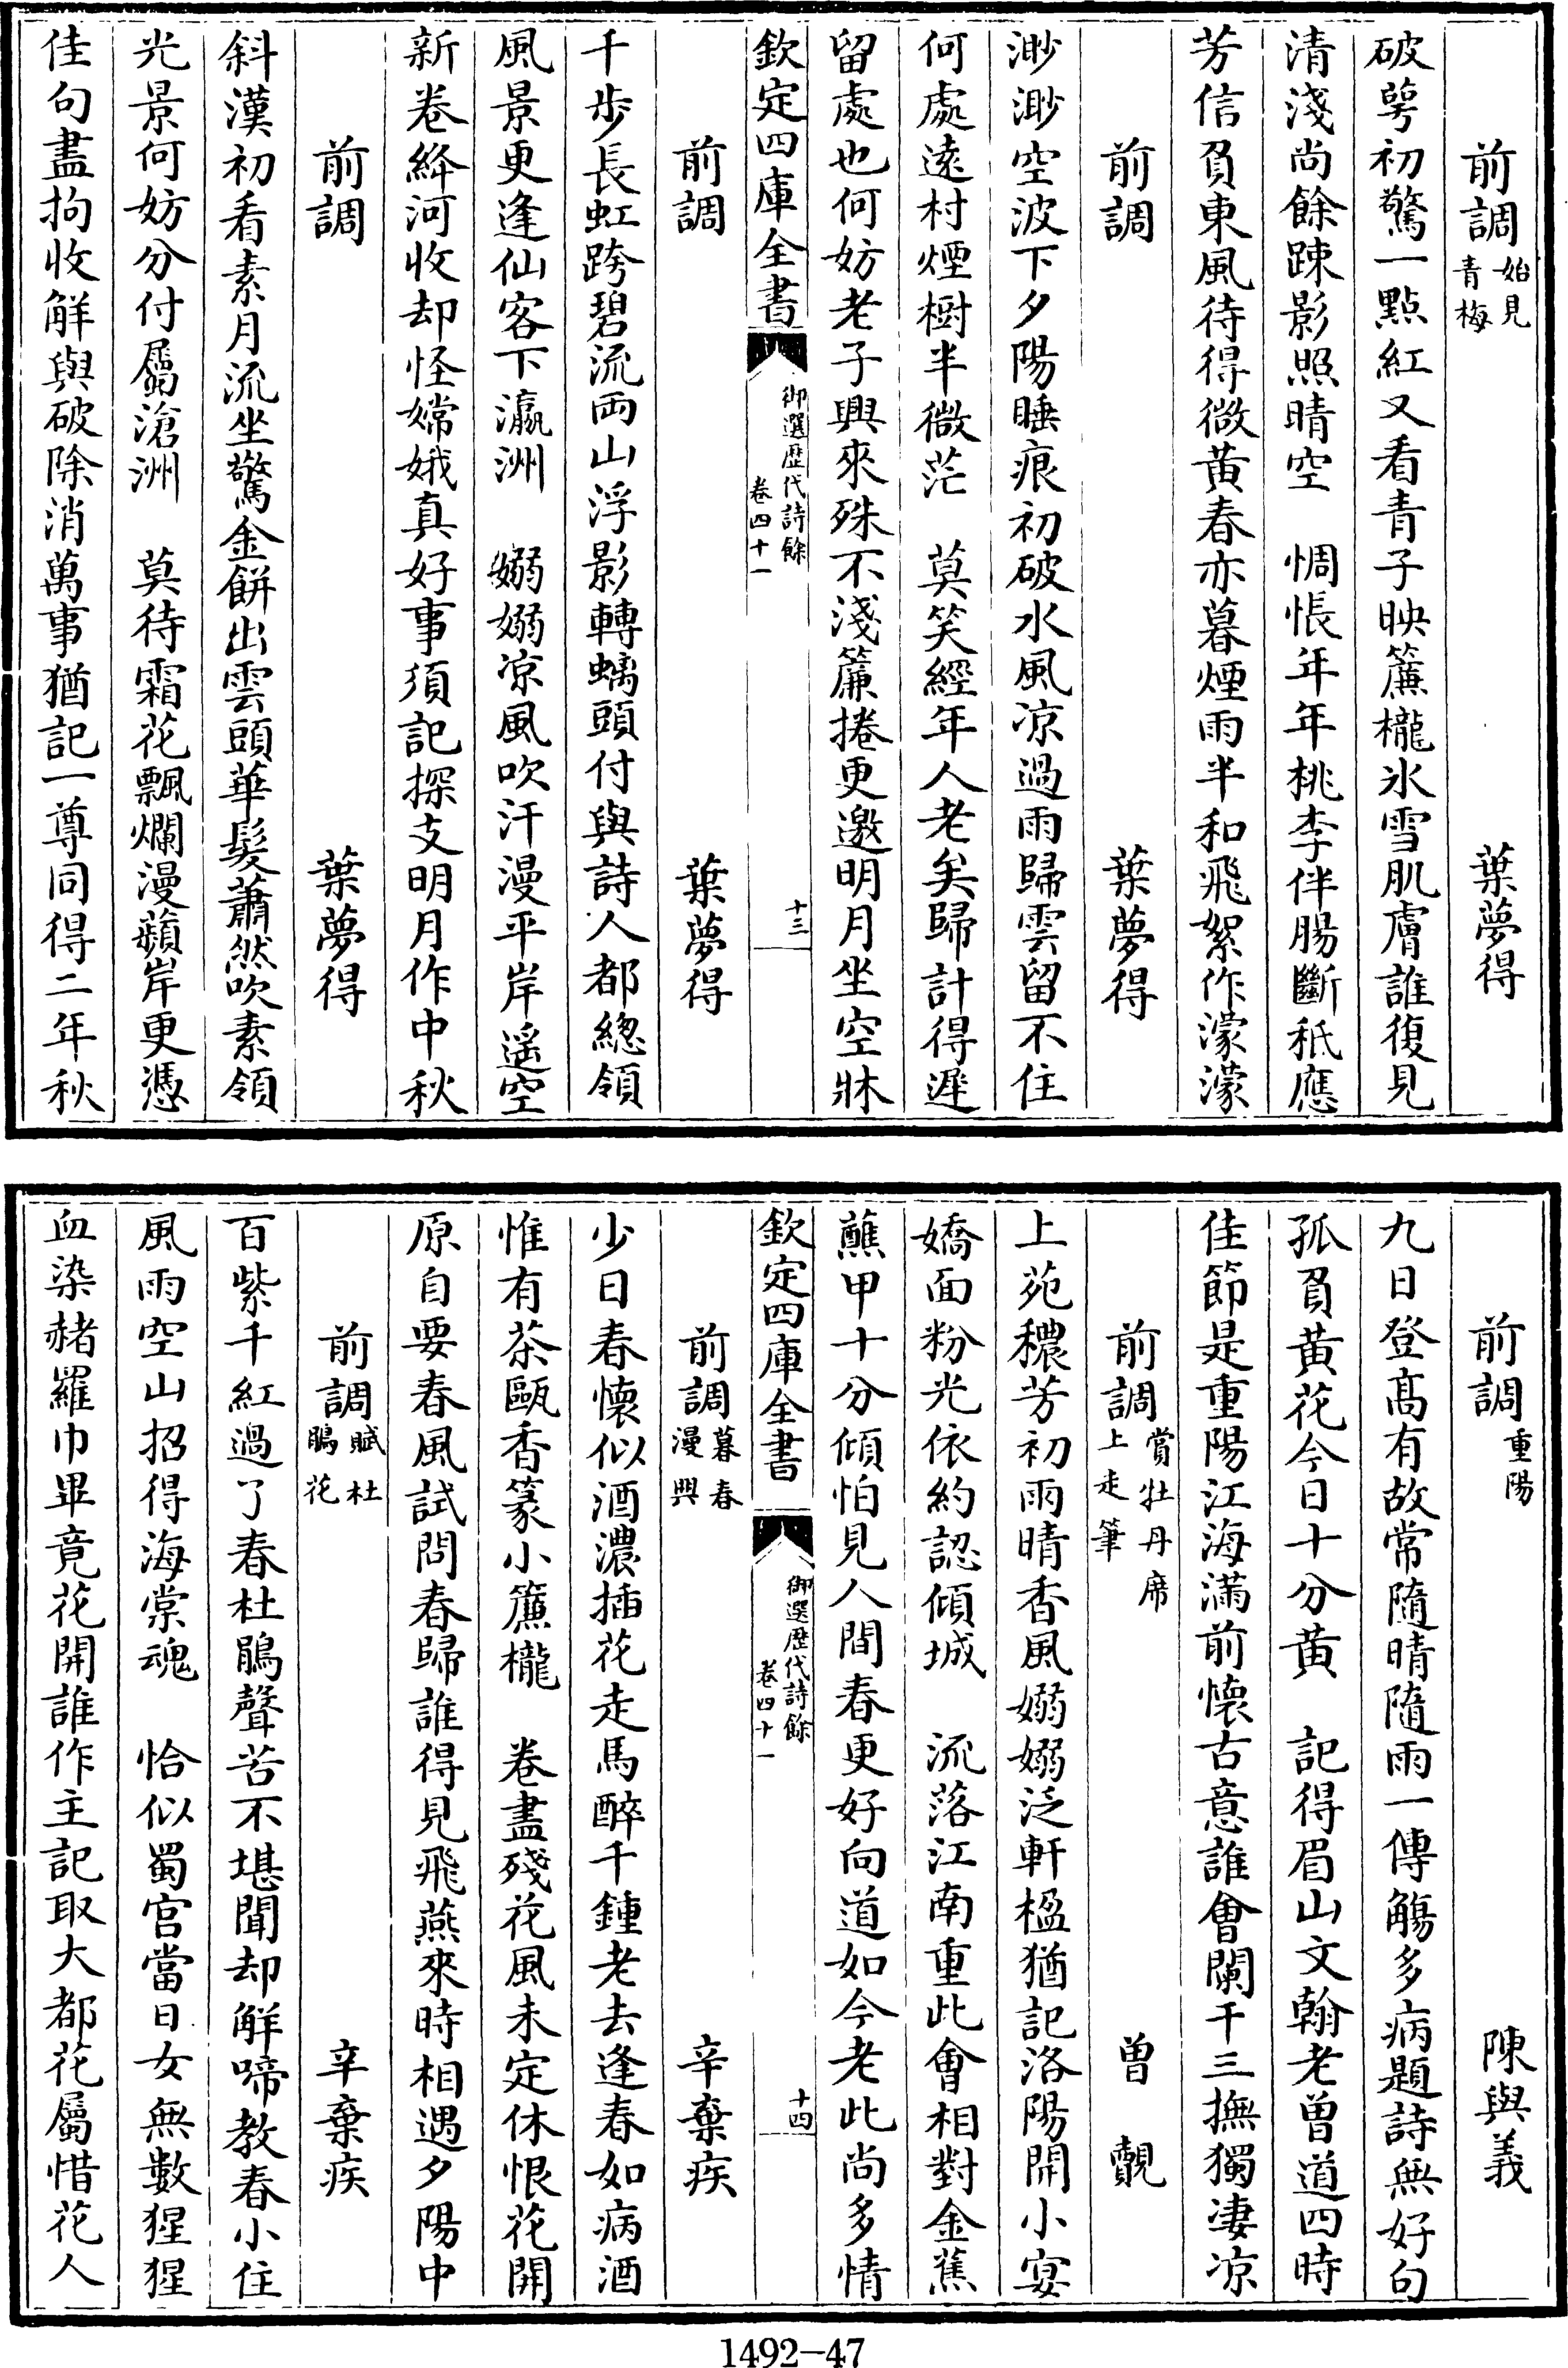 前調始見青梅　葉夢得
破萼初驚一點紅又看青子映簾櫳氷雪肌膚誰復見
清淺尚餘踈影照晴空　惆悵年年桃李伴腸斷秖應
芳信負東風待得微黃春亦暮煙雨半和飛絮作濛濛
前調　葉夢得
渺渺空波下夕陽睡痕初破水風凉過雨歸雲留不住
何處遠村煙樹半微茫　莫笑經年人老矣歸計得遲
留處也何妨老子興來殊不淺簾捲更邀明月坐空牀
欽定四庫全書　御選歷代詩餘卷四十一　十三
前調　葉夢得
千歩長虹跨碧流兩山浮影轉螭頭付與詩人都總領
風景更逢仙客下瀛洲　嫋嫋凉風吹汗漫平岸遙空
新卷絳河收却怪嫦娥真好事須記探支明月作中秋
前調　葉夢得
斜漢初看素月流坐驚金餅出雲頭華髮蕭然吹素領
光景何妨分付屬滄洲　莫待霜花飄爛漫蘋岸更憑
佳句盡拘收解與破除消萬事猶記一尊同得二年秋
前調重陽　陳與義
九日登髙有故常隨晴隨雨一傳觴多病題詩無好句
孤負黃花今日十分黃　記得眉山文翰老曽道四時
佳節是重陽江海滿前懷古意誰會闌干三撫獨凄凉
前調賞牡丹席上走筆　曽覿
上苑穠芳初雨晴香風嫋嫋泛軒楹猶記洛陽開小宴
嬌面粉光依約認傾城　流落江南重此會相對金蕉
蘸甲十分傾怕見人間春更好向道如今老此尚多情
欽定四庫全書　御選歷代詩餘卷四十一　十四
前調暮春漫興　辛棄疾
少日春懷似酒濃插花走馬醉千鍾老去逢春如病酒
惟有茶甌香篆小簾櫳　卷盡殘花風未定休恨花開
原自要春風試問春歸誰得見飛燕來時相遇夕陽中
前調賦杜鵑花　辛棄疾
百紫千紅過了春杜鵑聲苦不堪聞却解啼教春小住
風雨空山招得海棠魂　恰似蜀宫當日女無數猩猩
血染赭羅巾畢竟花開誰作主記取大都花屬惜花人
1492-47